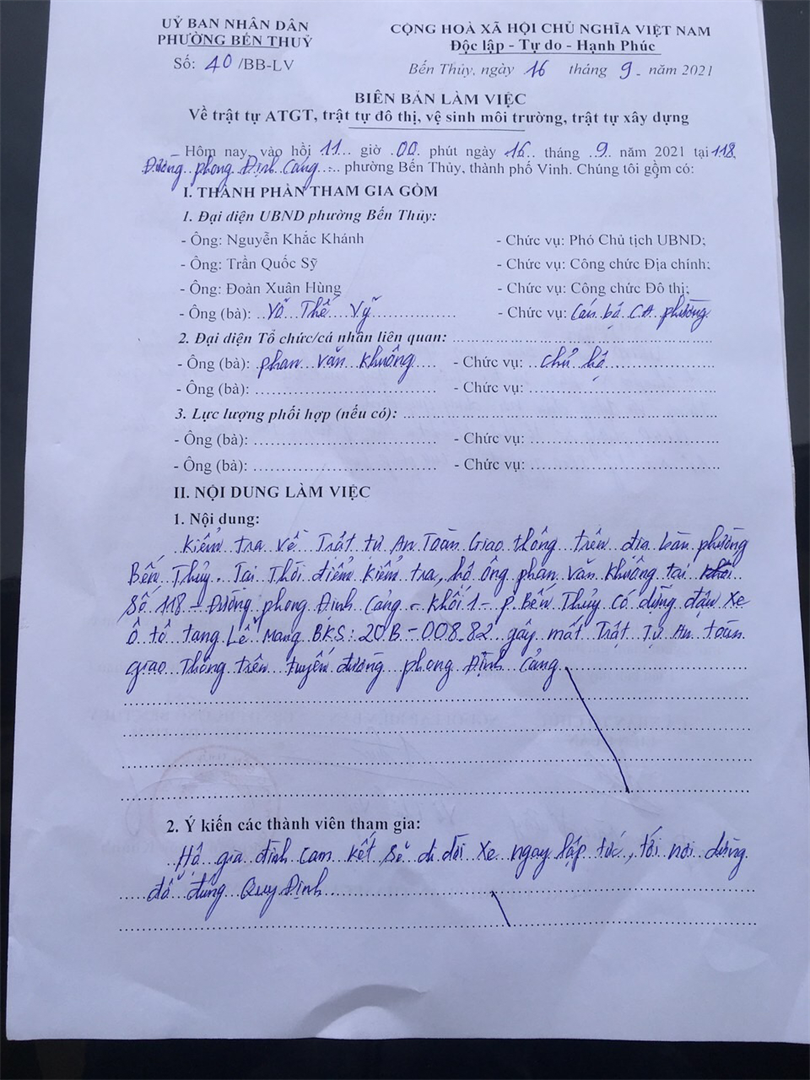 UỶ BAN NHÂN DÂN
PHƯỜNG BẾN THUỶ
Số: 40/BB-LV
CỘNG HOÀ XÃ HỘI CHỦ NGHĨA VIỆT NAM
Độc lập - Tự do - Hạnh Phúc
Bến Thủy, ngày 16 tháng 9. năm 2021
BIÊN BẢN LÀM VIỆC
Về trật tự ATGT, trật tự đô thị, vệ sinh môi trường, trật tự xây dựng
Hôm nay, vào hồi 11 giờ 00 phút ngày 16 tháng 9 năm 2021 tại 118
Đường phong Định Cảng - phường Bến Thủy, thành phố Vinh. Chúng tôi gồm có:
I. THÀNH PHẦN THAM GIA GỒM
1. Đại diện UBND phường Bến Thủy:
- Ông: Nguyễn Khắc Khánh - Chức vụ: Phó Chủ tịch UBND;
- Ông: Trần Quốc Sỹ - Chức vụ: Công chức Địa chính;
- Ông: Đoàn Xuân Hùng - Chức vụ: Công chức Đô thị;
- Ông (bà): Võ Thế Vỹ - Chức vụ: Cán bộ CA phường
2. Đại diện Tổ chức/cá nhân liên quan:
- Ông (bà): phan Văn Khường - Chức vụ: chủ hộ
- Ông (bà): - Chức vụ:
3. Lực lượng phối hợp (nếu có):
- Ông (bà): - Chức vụ:
- Ông (bà): - Chức vụ:
II. NỘI DUNG LÀM VIỆC
1. Nội dung:
Kiểm tra về Trật tự An Toàn Giao thông trên địa bàn phường
Bến Thủy. Tại Thời điểm kiểm tra, hộ ông phan văn Khường tại
Số 118 - Đường phong Định Cảng - Khối 1 - P. Bến Thủy Có dừng đậu Xe
ô tô tang Lễ Mang BKS: 20B-00882 gây mất Trật Tự An toàn
giao Thông trên tuyến đường phong Định Cảng
2. Ý kiến các thành viên tham gia:
Hộ gia đình Cam kết Sẽ di dời Xe ngay lập tức, tới nơi dừng
đỗ đúng Quy Định